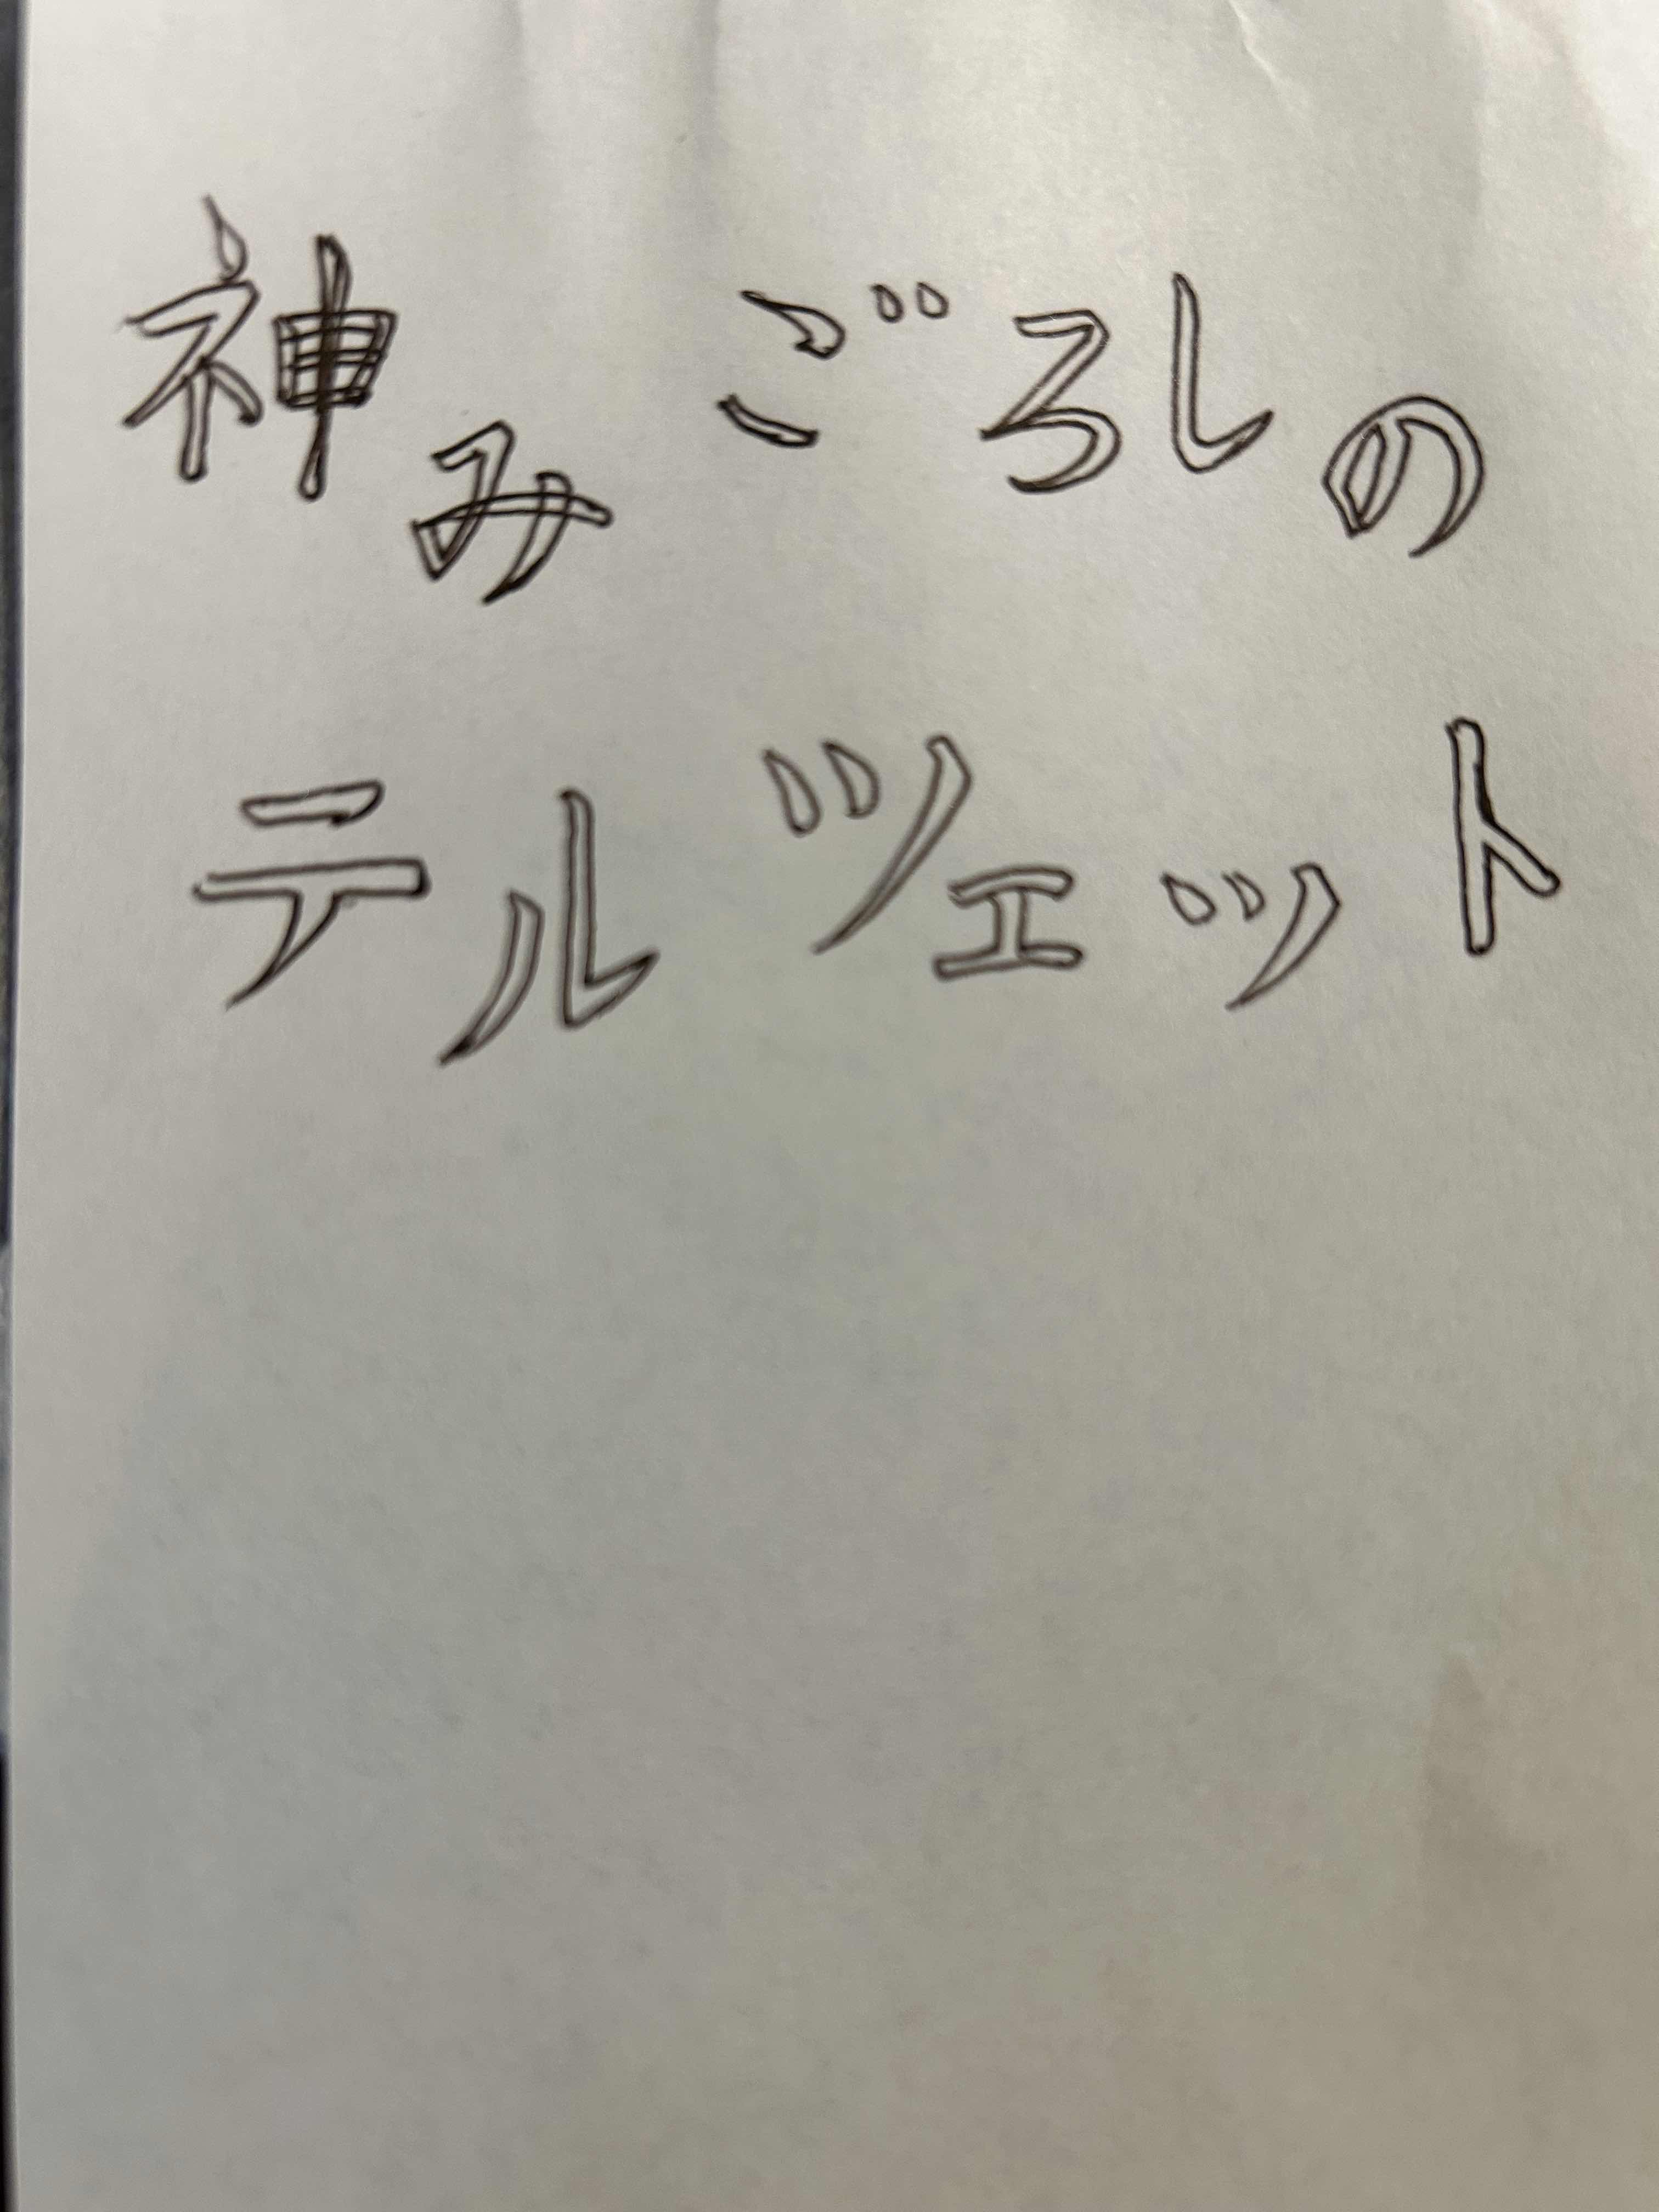 神みごろしの
テルツェット